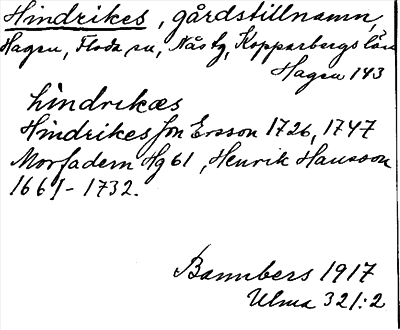 Hindrikes, gårdstillnamn,
Hagen, Floda sn, Nås tg, Kopparbergs län
Hagen 143
hìndrıkæs
Hindrikes Jon Ersson 1726, 1747
Morfadern Hg 61, Henrik Hansson
1661-1732.
Bannbers 1917
Ulma 321:2